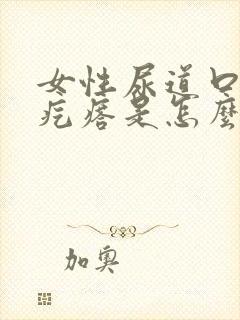 女性尿道口
疙瘩是怎麼
加奧